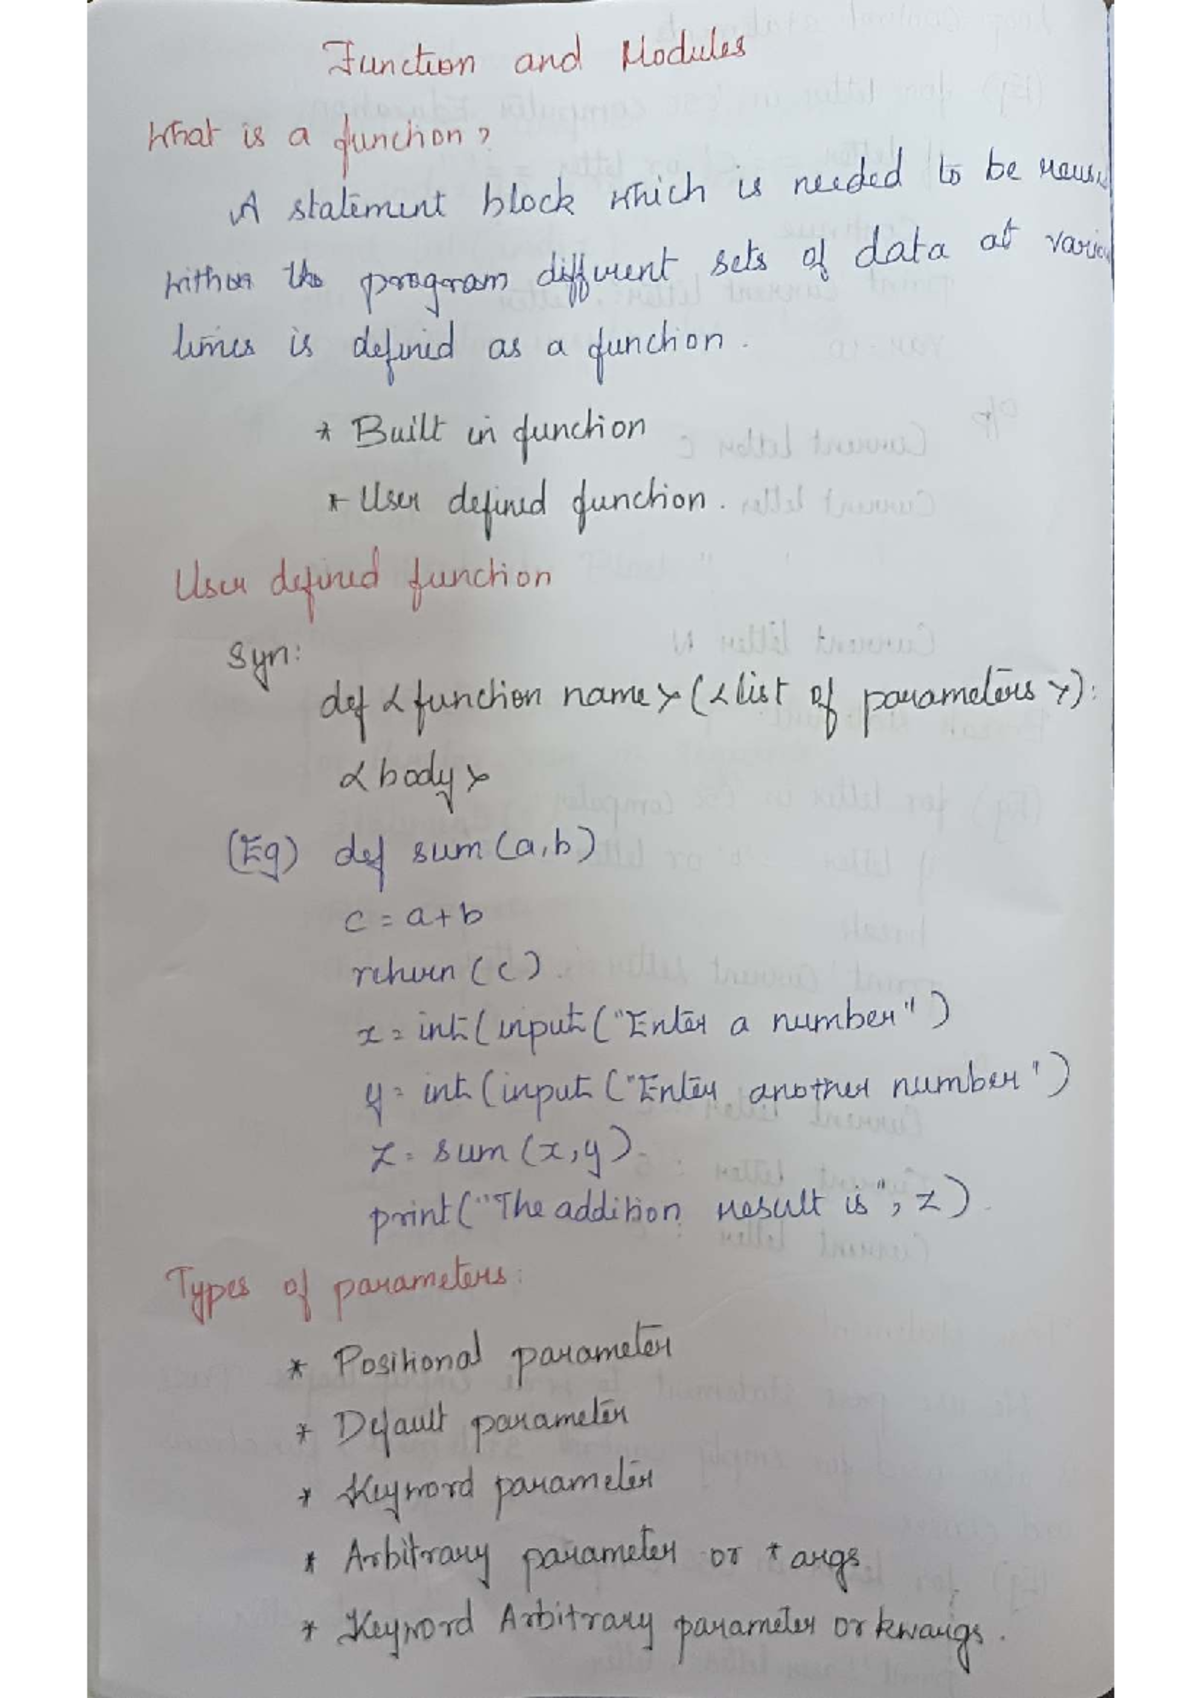 Function and Modules
What is a function?
A statement block which is needed to be reus
within the program different sets of data at vario
times is defined as a function.
* Built in function
* User defined function.
User defined function
Syn:
def <function name> (<list of parameters>):
<body>
(Eg) def sum (a,b)
c = a+b
return (c).
x = int (input ("Enter a number")
y = int (input ("Enter another number")
z = sum (x,y).
print ("The addition result is", z).
Types of parameters:
* Positional parameter
* Default parameter
* Keyword parameter
* Arbitrary parameter or *args
* Keyword Arbitrary parameter or kwargs.